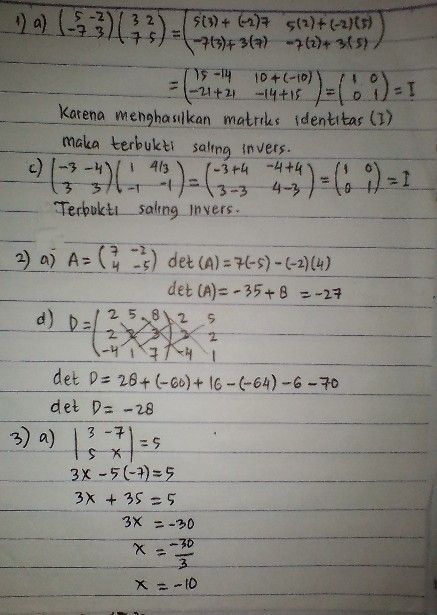 1) a) (5 -2 / -7 3) (3 2 / 7 5) = (5(3) + (-2)7 5(2) + (-2)(5) / -7(3) + 3(7) -7(2) + 3(5))
= (15 -14 10 + (-10) / -21 + 21 -14 + 15) = (1 0 / 0 1) = I
Karena menghasilkan matriks identitas (I)
maka terbukti saling invers.
c) (-3 -4 / 3 3) (1 4/3 / -1 -1) = (-3 + 4 -4 + 4 / 3 - 3 4 - 3) = (1 0 / 0 1) = I
Terbukti saling invers.
2) a) A = (7 -2 / 4 -5) det (A) = 7(-5) - (-2)(4)
det (A) = -35 + 8 = -27
d) D = (2 5 8 / 2 2 3 / -4 1 7) 2 5 / 2 2 / -4 1
det D = 28 + (-60) + 16 - (-64) - 6 - 70
det D = -28
3) a) |3 -7 / 5 x| = 5
3x - 5(-7) = 5
3x + 35 = 5
3x = -30
x = -30/3
x = -10